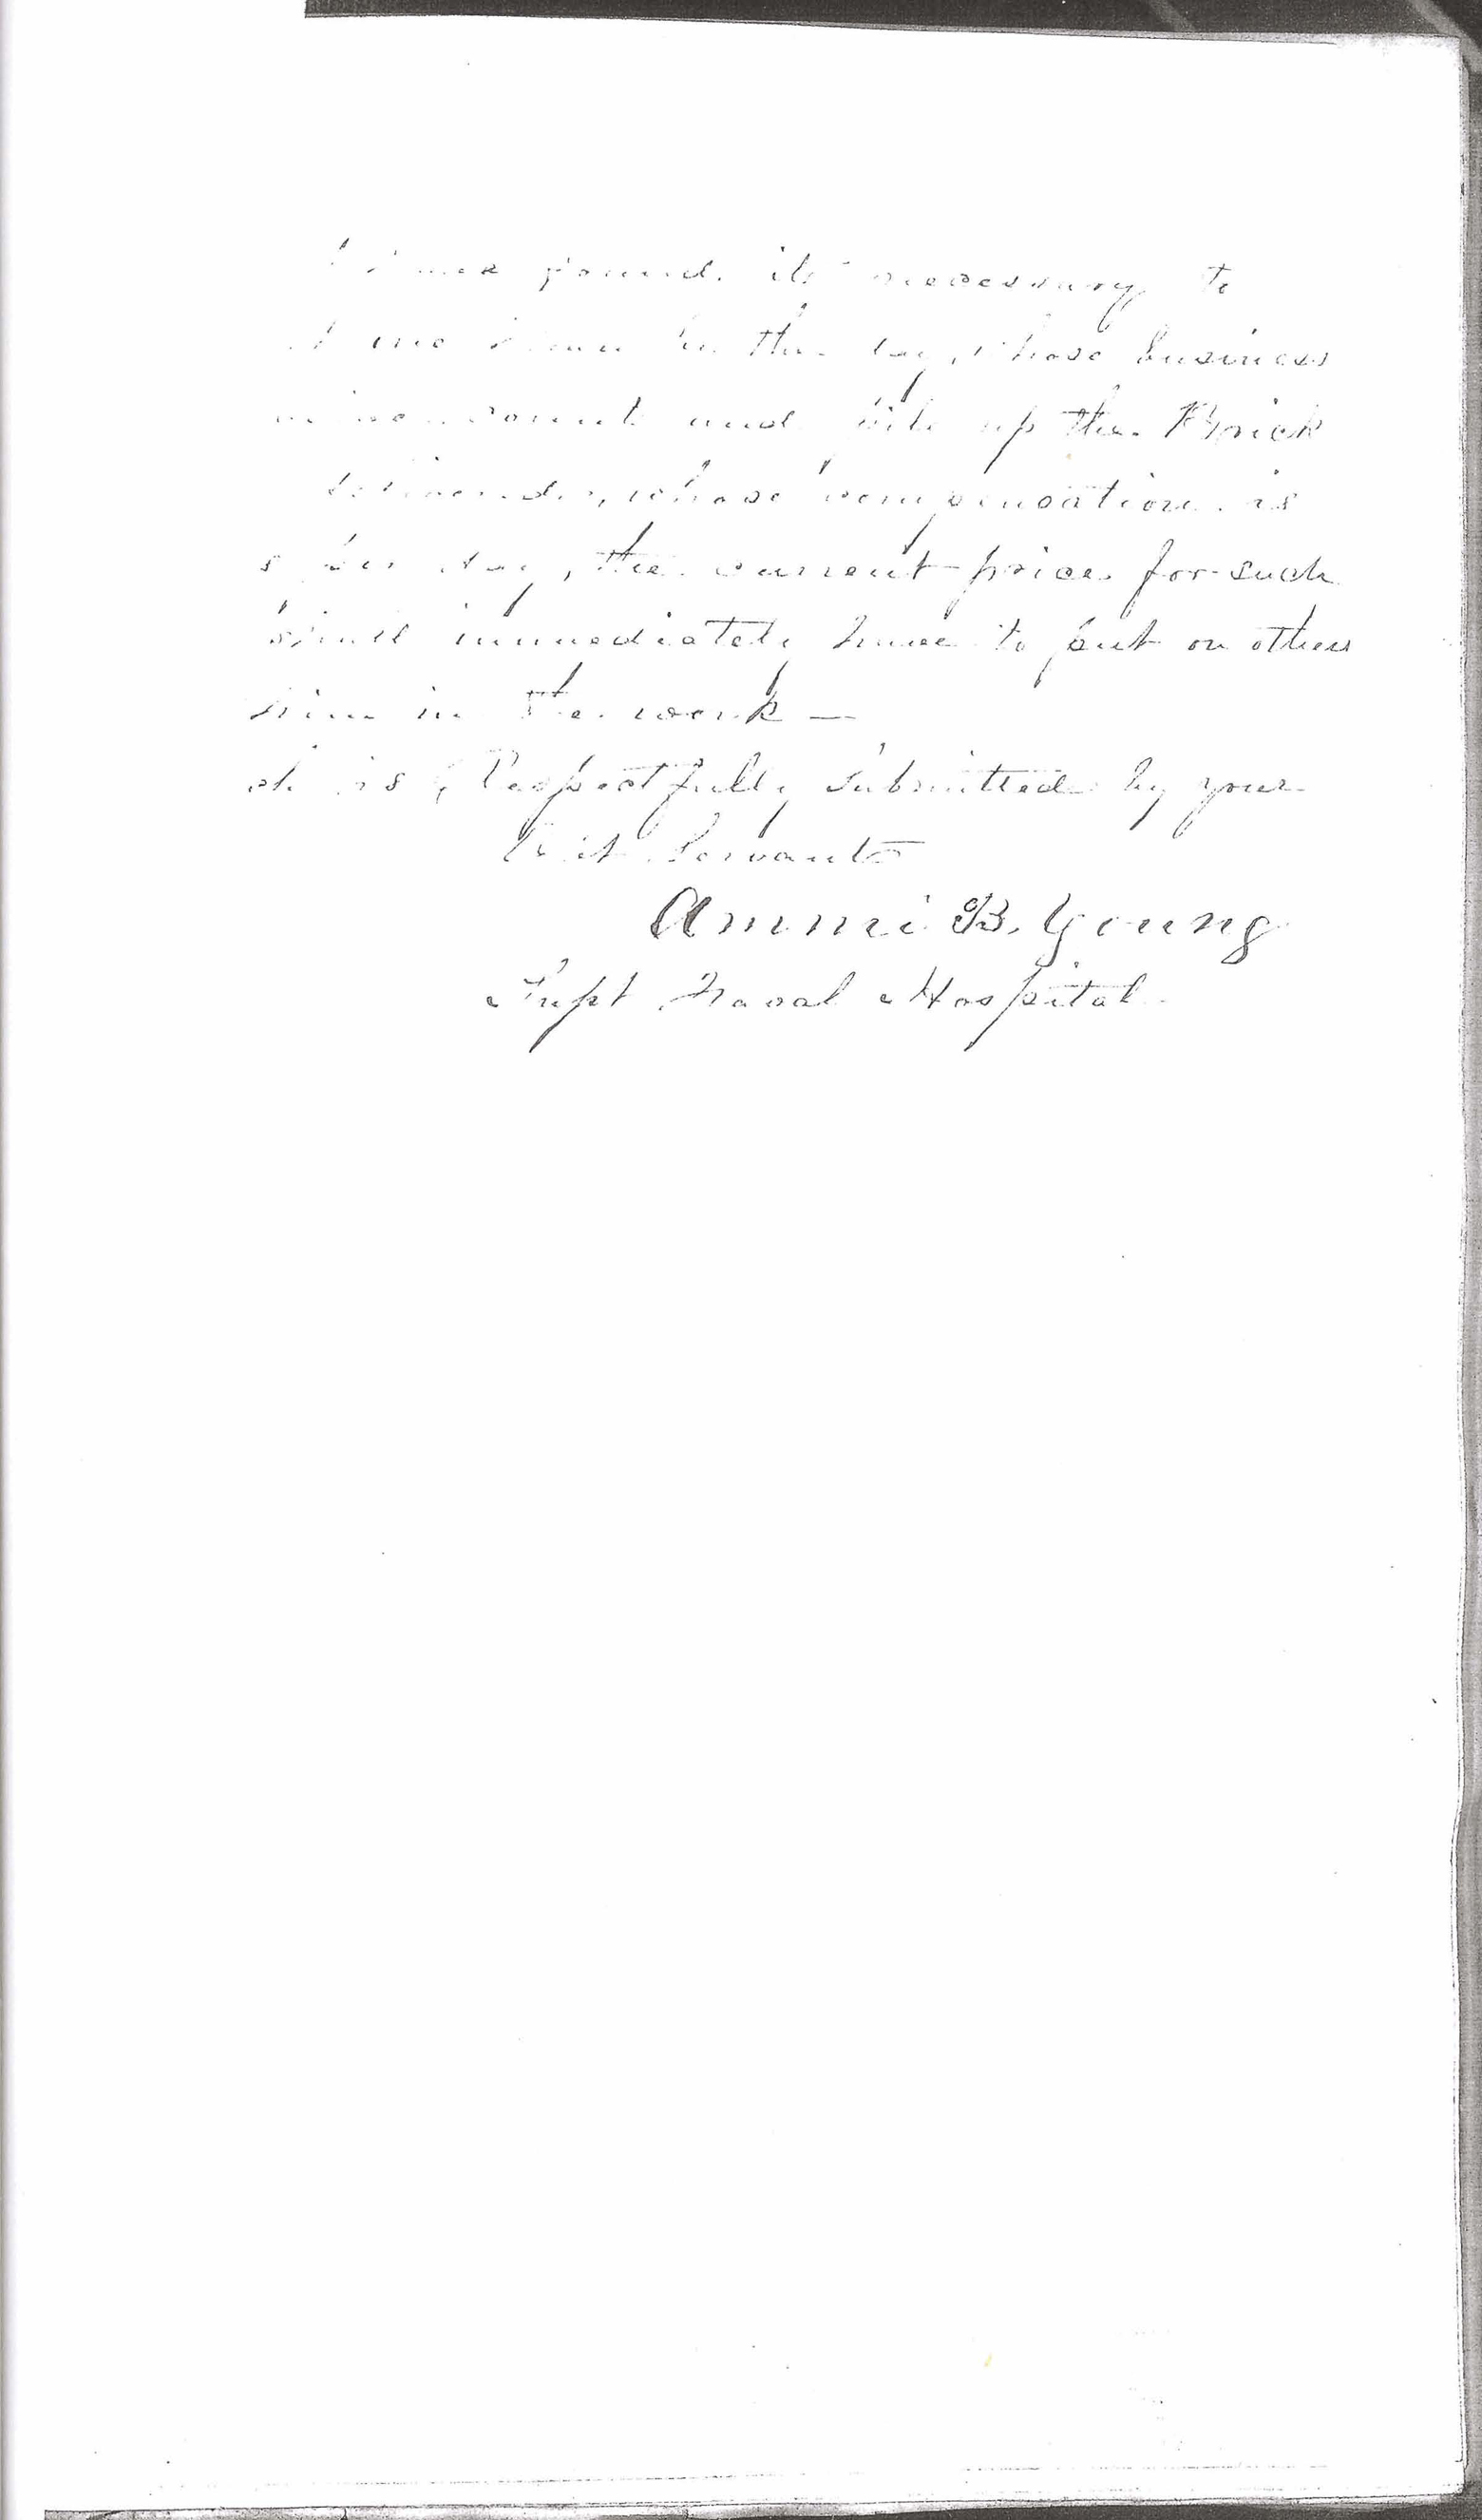 found it necessary to
by the day, whose business
count and pile up the Brick
delivered, whose compensation is
per day, the current price for such
shall immediately have to put on others
him in the work —
is, Respectfully Submitted by your
Servant
Ammi B. Young
Supt Naval Hospital